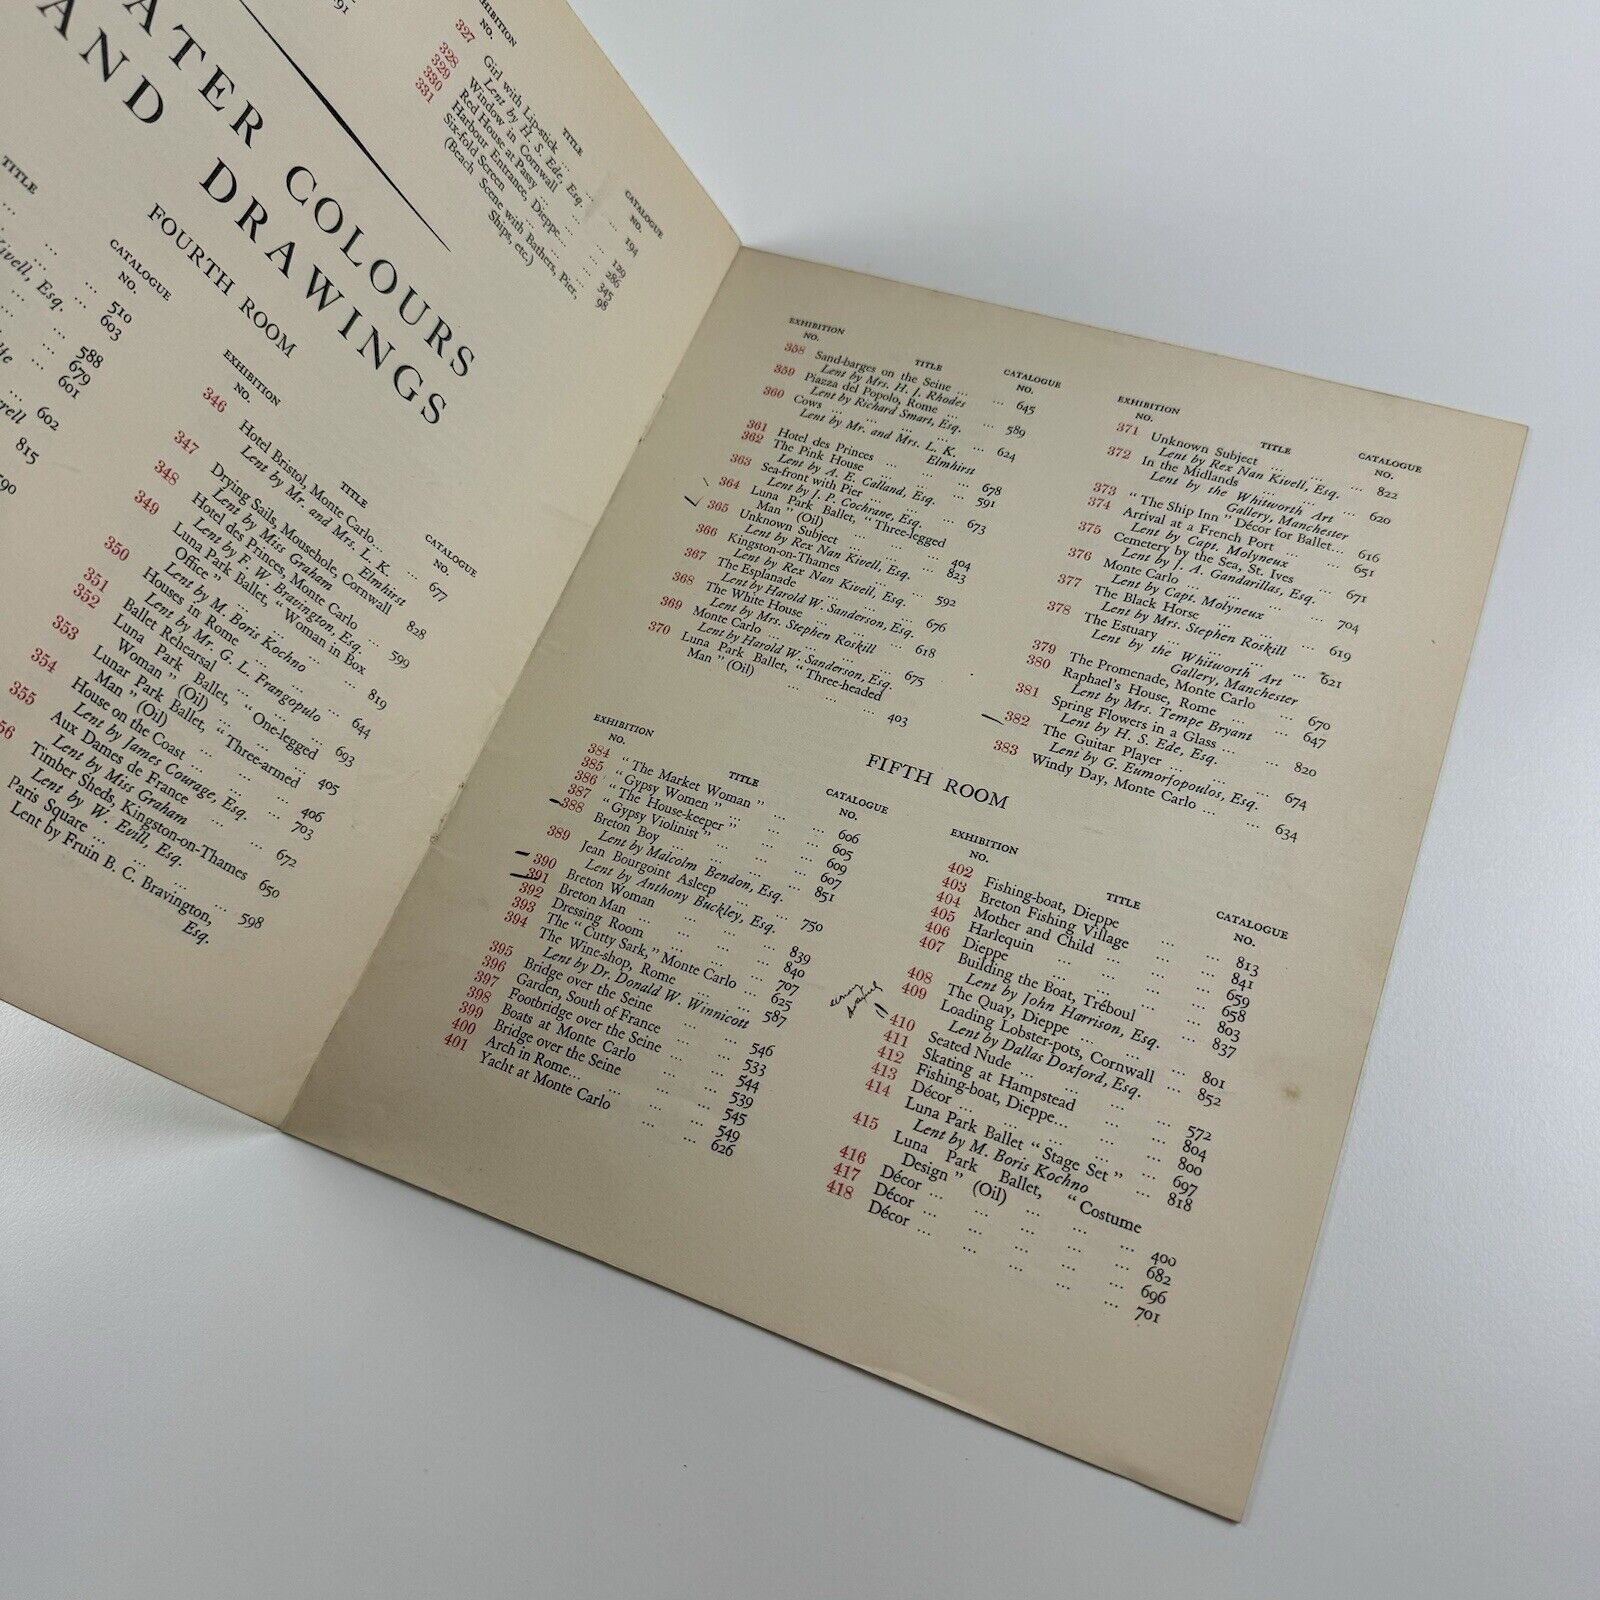 ATER COLOURS
AND DRAWINGS
FOURTH ROOM
TITLE
CATALOGUE
NO.
... 510
Kivell, Esq. ... 603
... 588
... 679
... 601
... 602
815
790
EXHIBITION
NO.
TITLE
CATALOGUE
NO.
327 Girl with Lip-stick ... 194
Lent by H. S. Ede, Esq.
328 Window in Cornwall ... 129
329 Red House at Passy ... 286
330 Harbour Entrance, Dieppe... 345
331 Six-fold Screen ... 98
(Beach Scene with Bathers, Pier,
Ships, etc.)
EXHIBITION
NO.
TITLE
CATALOGUE
NO.
346 Hotel Bristol, Monte Carlo... 677
Lent by Mr. and Mrs. L. K.
Elmhirst
347 Drying Sails, Mousehole, Cornwall 828
Lent by Miss Graham
348 Hotel des Princes, Monte Carlo ... 599
Lent by F. W. Bravington, Esq.
349 Luna Park Ballet, "Woman in Box
Office" ... 819
Lent by M. Boris Kochno
350 Houses in Rome ... 644
Lent by Mr. G. L. Frangopulo
351 Ballet Rehearsal ... 693
352 Luna Park Ballet, "One-legged
Woman" (Oil) ... 405
353 Lunar Park Ballet, "Three-armed
Man" (Oil) ... 406
354 House on the Coast ... 703
Lent by James Courage, Esq.
355 Aux Dames de France ... 672
Lent by Miss Graham
56 Timber Sheds, Kingston-on-Thames 650
Lent by W. Evill, Esq.
Paris Square ... 598
Lent by Fruin B. C. Bravington,
Esq.
EXHIBITION
NO.
TITLE
CATALOGUE
NO.
358 Sand-barges on the Seine ... 645
Lent by Mrs. H. J. Rhodes
359 Piazza del Popolo, Rome ... 589
Lent by Richard Smart, Esq.
360 Cows ... 624
Lent by Mr. and Mrs. L. K.
Elmhirst
361 Hotel des Princes ... 678
362 The Pink House ... 591
Lent by A. E. Calland, Esq.
363 Sea-front with Pier ... 673
Lent by J. P. Cochrane, Esq.
364 Luna Park Ballet, "Three-legged
Man" (Oil) ... 404
365 Unknown Subject ... 823
Lent by Rex Nan Kivell, Esq.
366 Kingston-on-Thames ... 592
Lent by Rex Nan Kivell, Esq.
367 The Esplanade ... 676
Lent by Harold W. Sanderson, Esq.
368 The White House ... 618
Lent by Mrs. Stephen Roskill
369 Monte Carlo ... 675
Lent by Harold W. Sanderson, Esq.
370 Luna Park Ballet, "Three-headed
Man" (Oil) ... 403
EXHIBITION
NO.
TITLE
CATALOGUE
NO.
371 Unknown Subject ... 822
Lent by Rex Nan Kivell, Esq.
372 In the Midlands ... 620
Lent by the Whitworth Art
Gallery, Manchester
373 "The Ship Inn" Décor for Ballet... 616
374 Arrival at a French Port ... 651
Lent by Capt. Molyneux
375 Cemetery by the Sea, St. Ives ... 671
Lent by J. A. Gandarillas, Esq.
376 Monte Carlo ... 704
Lent by Capt. Molyneux
377 The Black Horse ... 619
Lent by Mrs. Stephen Roskill
378 The Estuary ... 621
Lent by the Whitworth Art
Gallery, Manchester
379 The Promenade, Monte Carlo ... 670
380 Raphael's House, Rome ... 647
Lent by Mrs. Tempe Bryant
381 Spring Flowers in a Glass ... 820
Lent by H. S. Ede, Esq.
382 The Guitar Player ... 674
Lent by G. Eumorfopoulos, Esq.
383 Windy Day, Monte Carlo ... 634
FIFTH ROOM
EXHIBITION
NO.
TITLE
CATALOGUE
NO.
384 "The Market Woman" ... 606
385 "Gypsy Women" ... 605
386 "The House-keeper" ... 609
387 "Gypsy Violinist" ... 607
388 Breton Boy ... 851
Lent by Malcolm Bendon, Esq.
389 Jean Bourgoint Asleep ... 750
Lent by Anthony Buckley, Esq.
390 Breton Woman ... 839
391 Breton Man ... 840
392 Dressing Room ... 707
393 The "Cutty Sark," Monte Carlo ... 625
394 The Wine-shop, Rome ... 587
Lent by Dr. Donald W. Winnicott
395 Bridge over the Seine ... 546
396 Garden, South of France ... 533
397 Footbridge over the Seine ... 544
398 Boats at Monte Carlo ... 539
399 Bridge over the Seine ... 545
400 Arch in Rome... 549
401 Yacht at Monte Carlo ... 626
EXHIBITION
NO.
TITLE
CATALOGUE
NO.
402 Fishing-boat, Dieppe ... 813
403 Breton Fishing Village ... 841
404 Mother and Child ... 659
405 Harlequin ... 658
406 Dieppe ... 803
407 Building the Boat, Tréboul ... 837
Lent by John Harrison, Esq.
408 The Quay, Dieppe ... 801
409 Loading Lobster-pots, Cornwall ... 852
Lent by Dallas Doxford, Esq.
410 Seated Nude ... 572
411 Skating at Hampstead ... 804
412 Fishing-boat, Dieppe... 800
413 Décor ... 697
414 Luna Park Ballet "Stage Set" ... 818
Lent by M. Boris Kochno
415 Luna Park Ballet, "Costume
Design" (Oil) ... 400
416 Décor ... 682
417 Décor ... 696
418 Décor ... 701